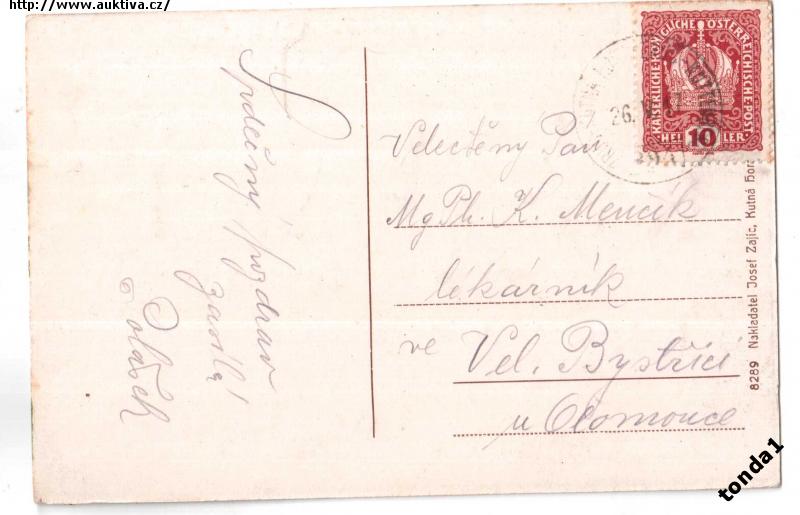 http://www.auktiva.cz/
Srdečný pozdrav
zasílá
Polášek
KAISERLICHE·KÖNIGLICHE ÖSTERREICHISCHE·POST
HELLER
10
26.
Velectěný Pan
Mg Ph. K. Mencík
lékárník
ve Vel. Bystřici
u Olomouce
8289 Nakladatel Josef Zajíc, Kutná Hora
tonda1